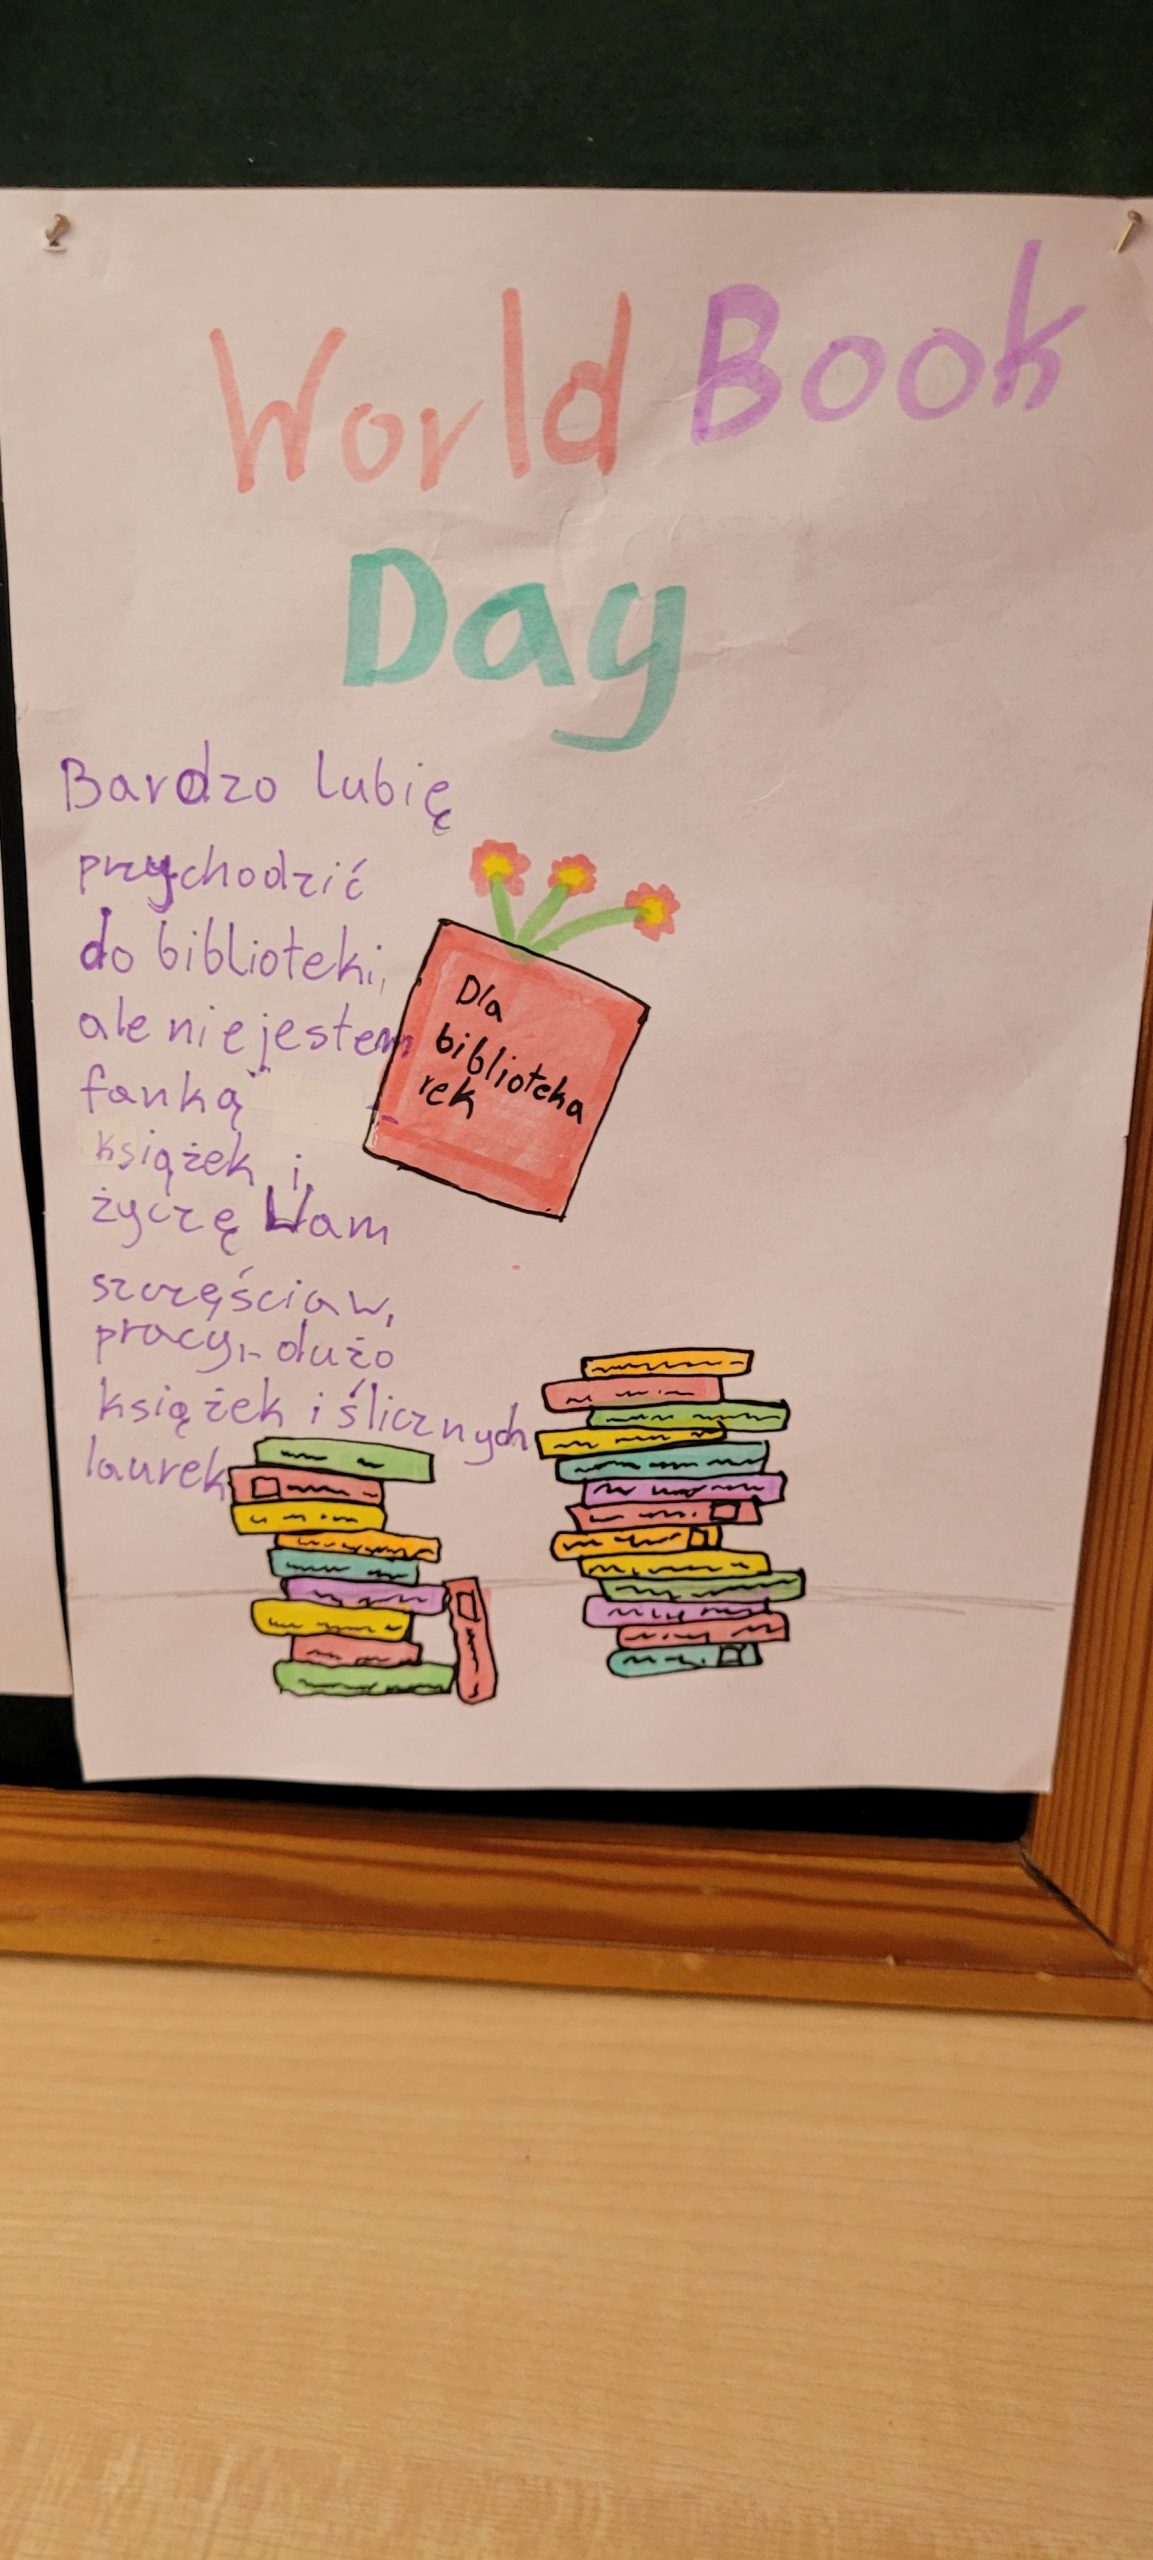 World Book
Day
Bardzo lubię
przychodzić
do biblioteki,
ale nie jestem
fanką
książek i
życzę Wam
szczęścia w
pracy, dużo
książek i ślicznych
laurek
Dla
biblioteka
rek